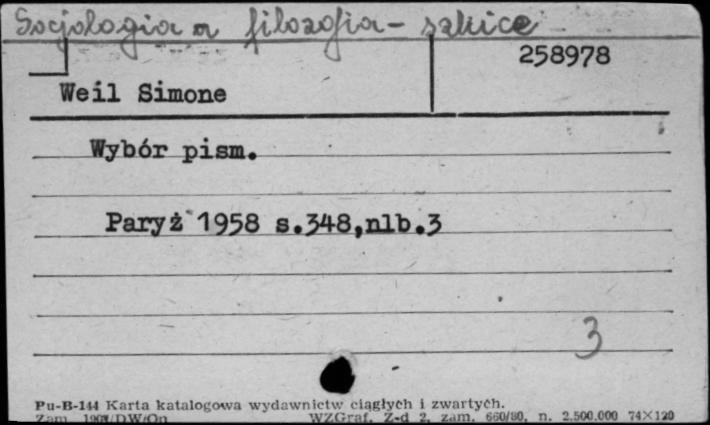 Socjologia a filozofia - szkice
258978
Weil Simone
Wybór pism.
Paryż 1958 s.348,nlb.3
3
Pu-B-144 Karta katalogowa wydawnictw ciągłych i zwartych.
Zam. DW/On WZGraf. Z-d 2, zam. 660/80, n. 2.500.000 74×120